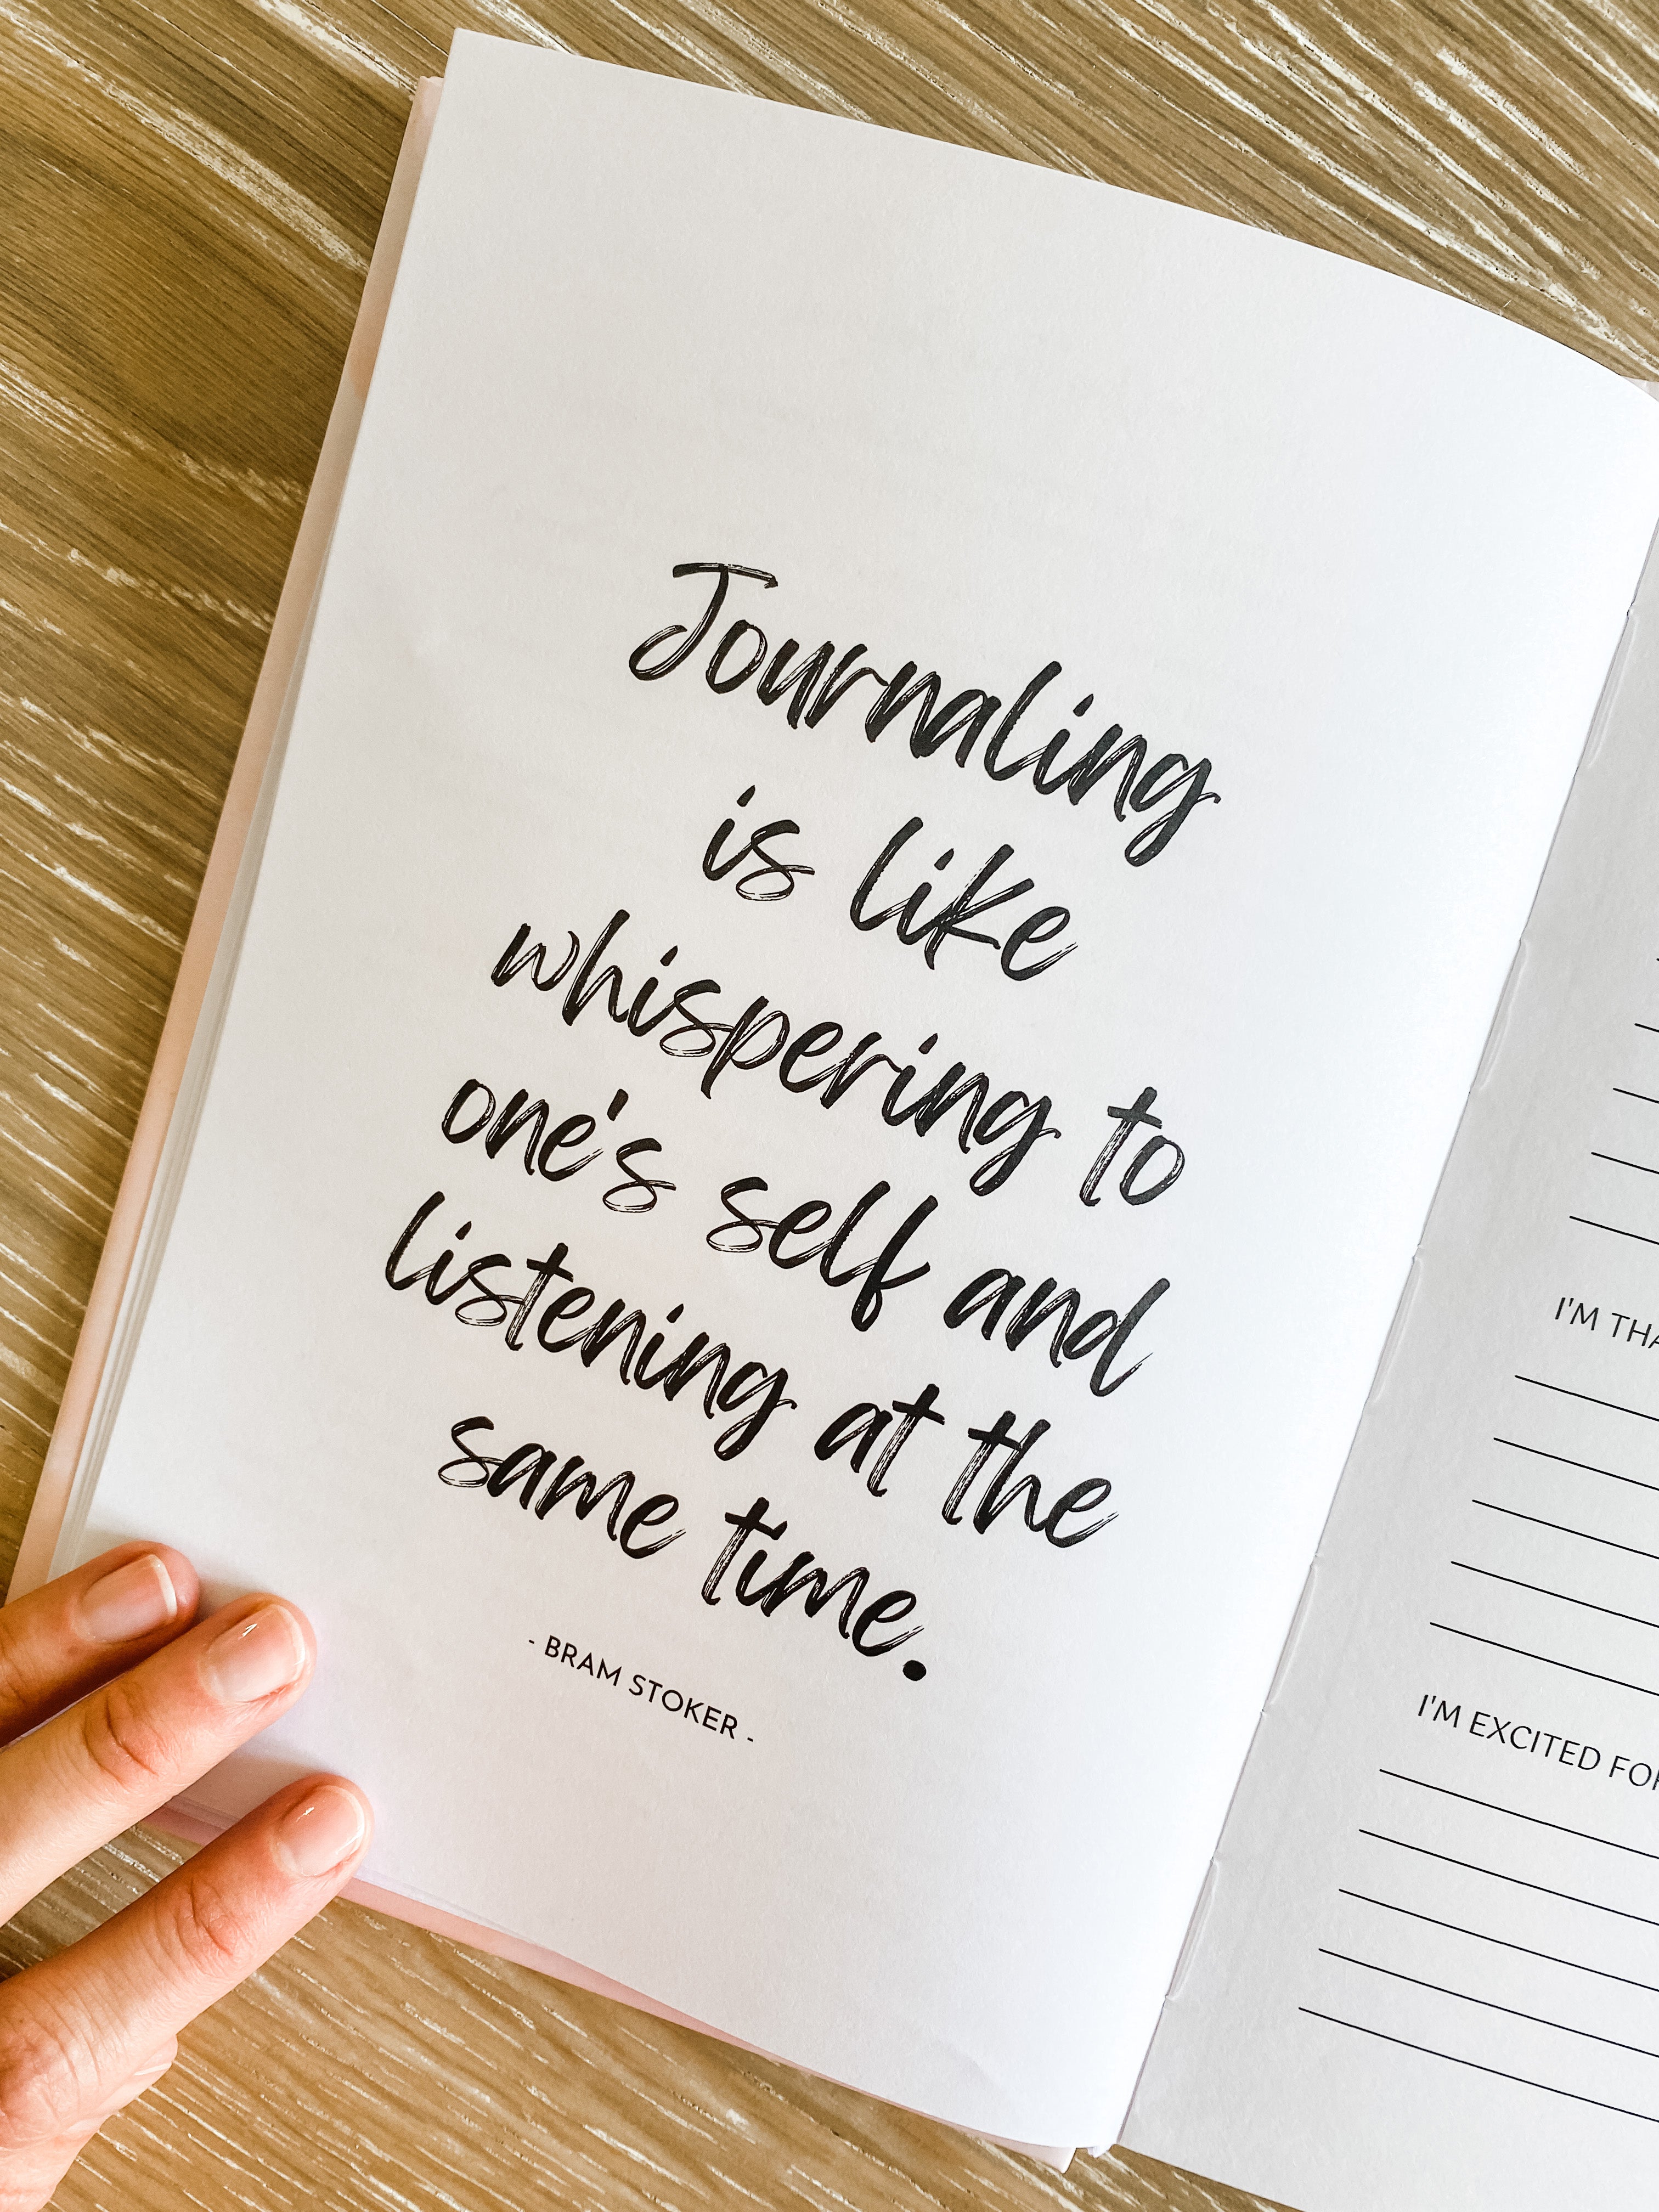 Journaling
is like
whispering to
one's self and
listening at the
same time.
- BRAM STOKER -
I'M
I'M EXCITED